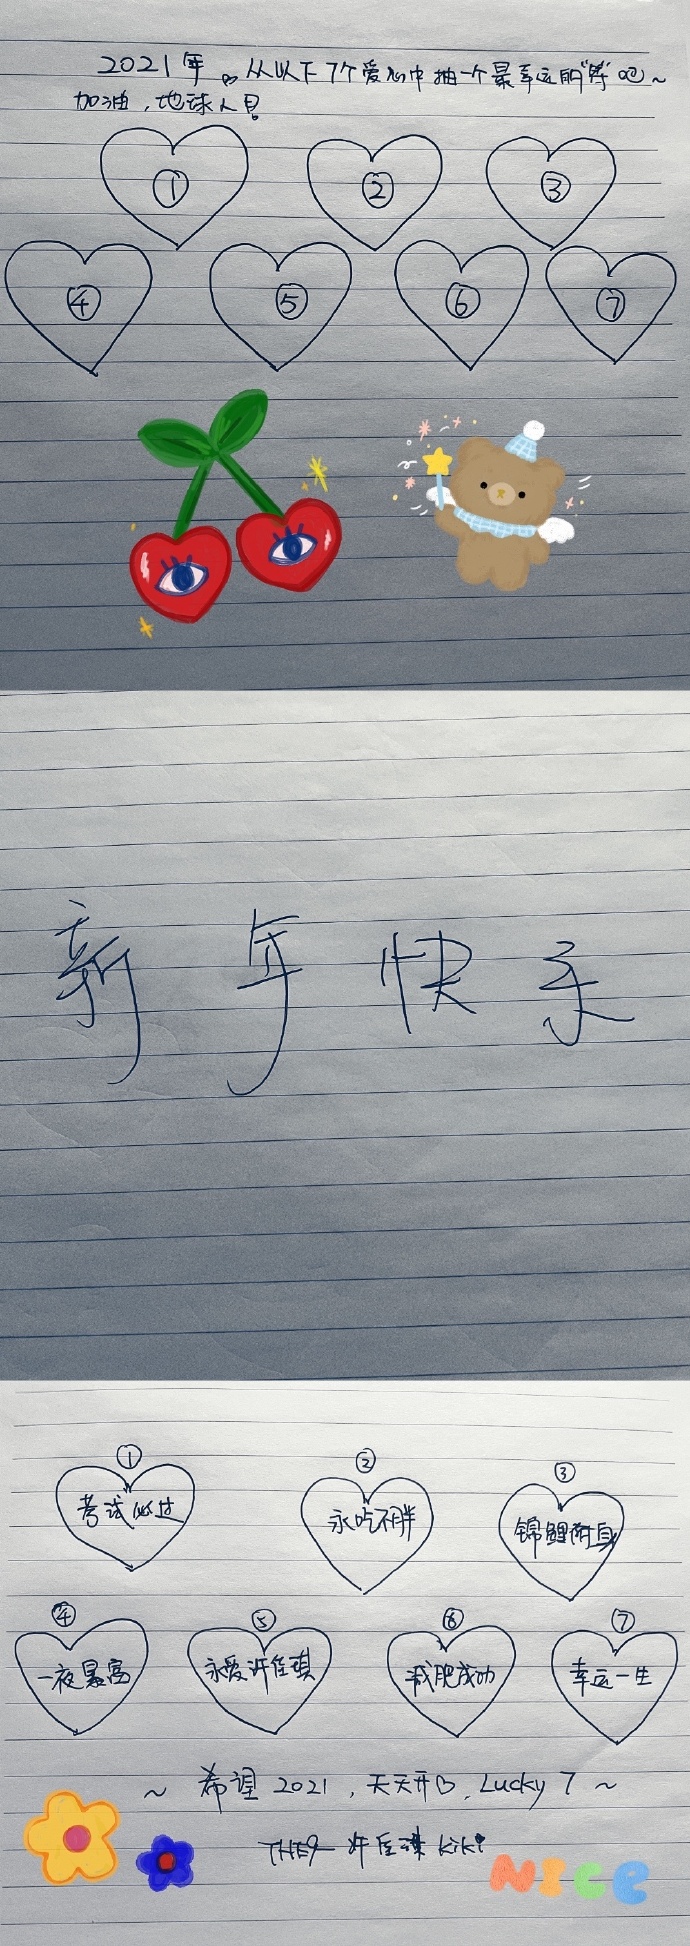 2021年，从以下7个爱心中抽一个最幸运的"箺"吧～
加油，地球人！
① ② ③
④ ⑤ ⑥ ⑦
新年快乐
① ② ③
考试必过 永吃不胖 锦鲤附身
④ ⑤ ⑥ ⑦
一夜暴富 永爱许佳琪 减肥成功 幸运一生
～ 希望2021，天天开心，Lucky 7 ～
THE9 许佳琪 kiki
NICE